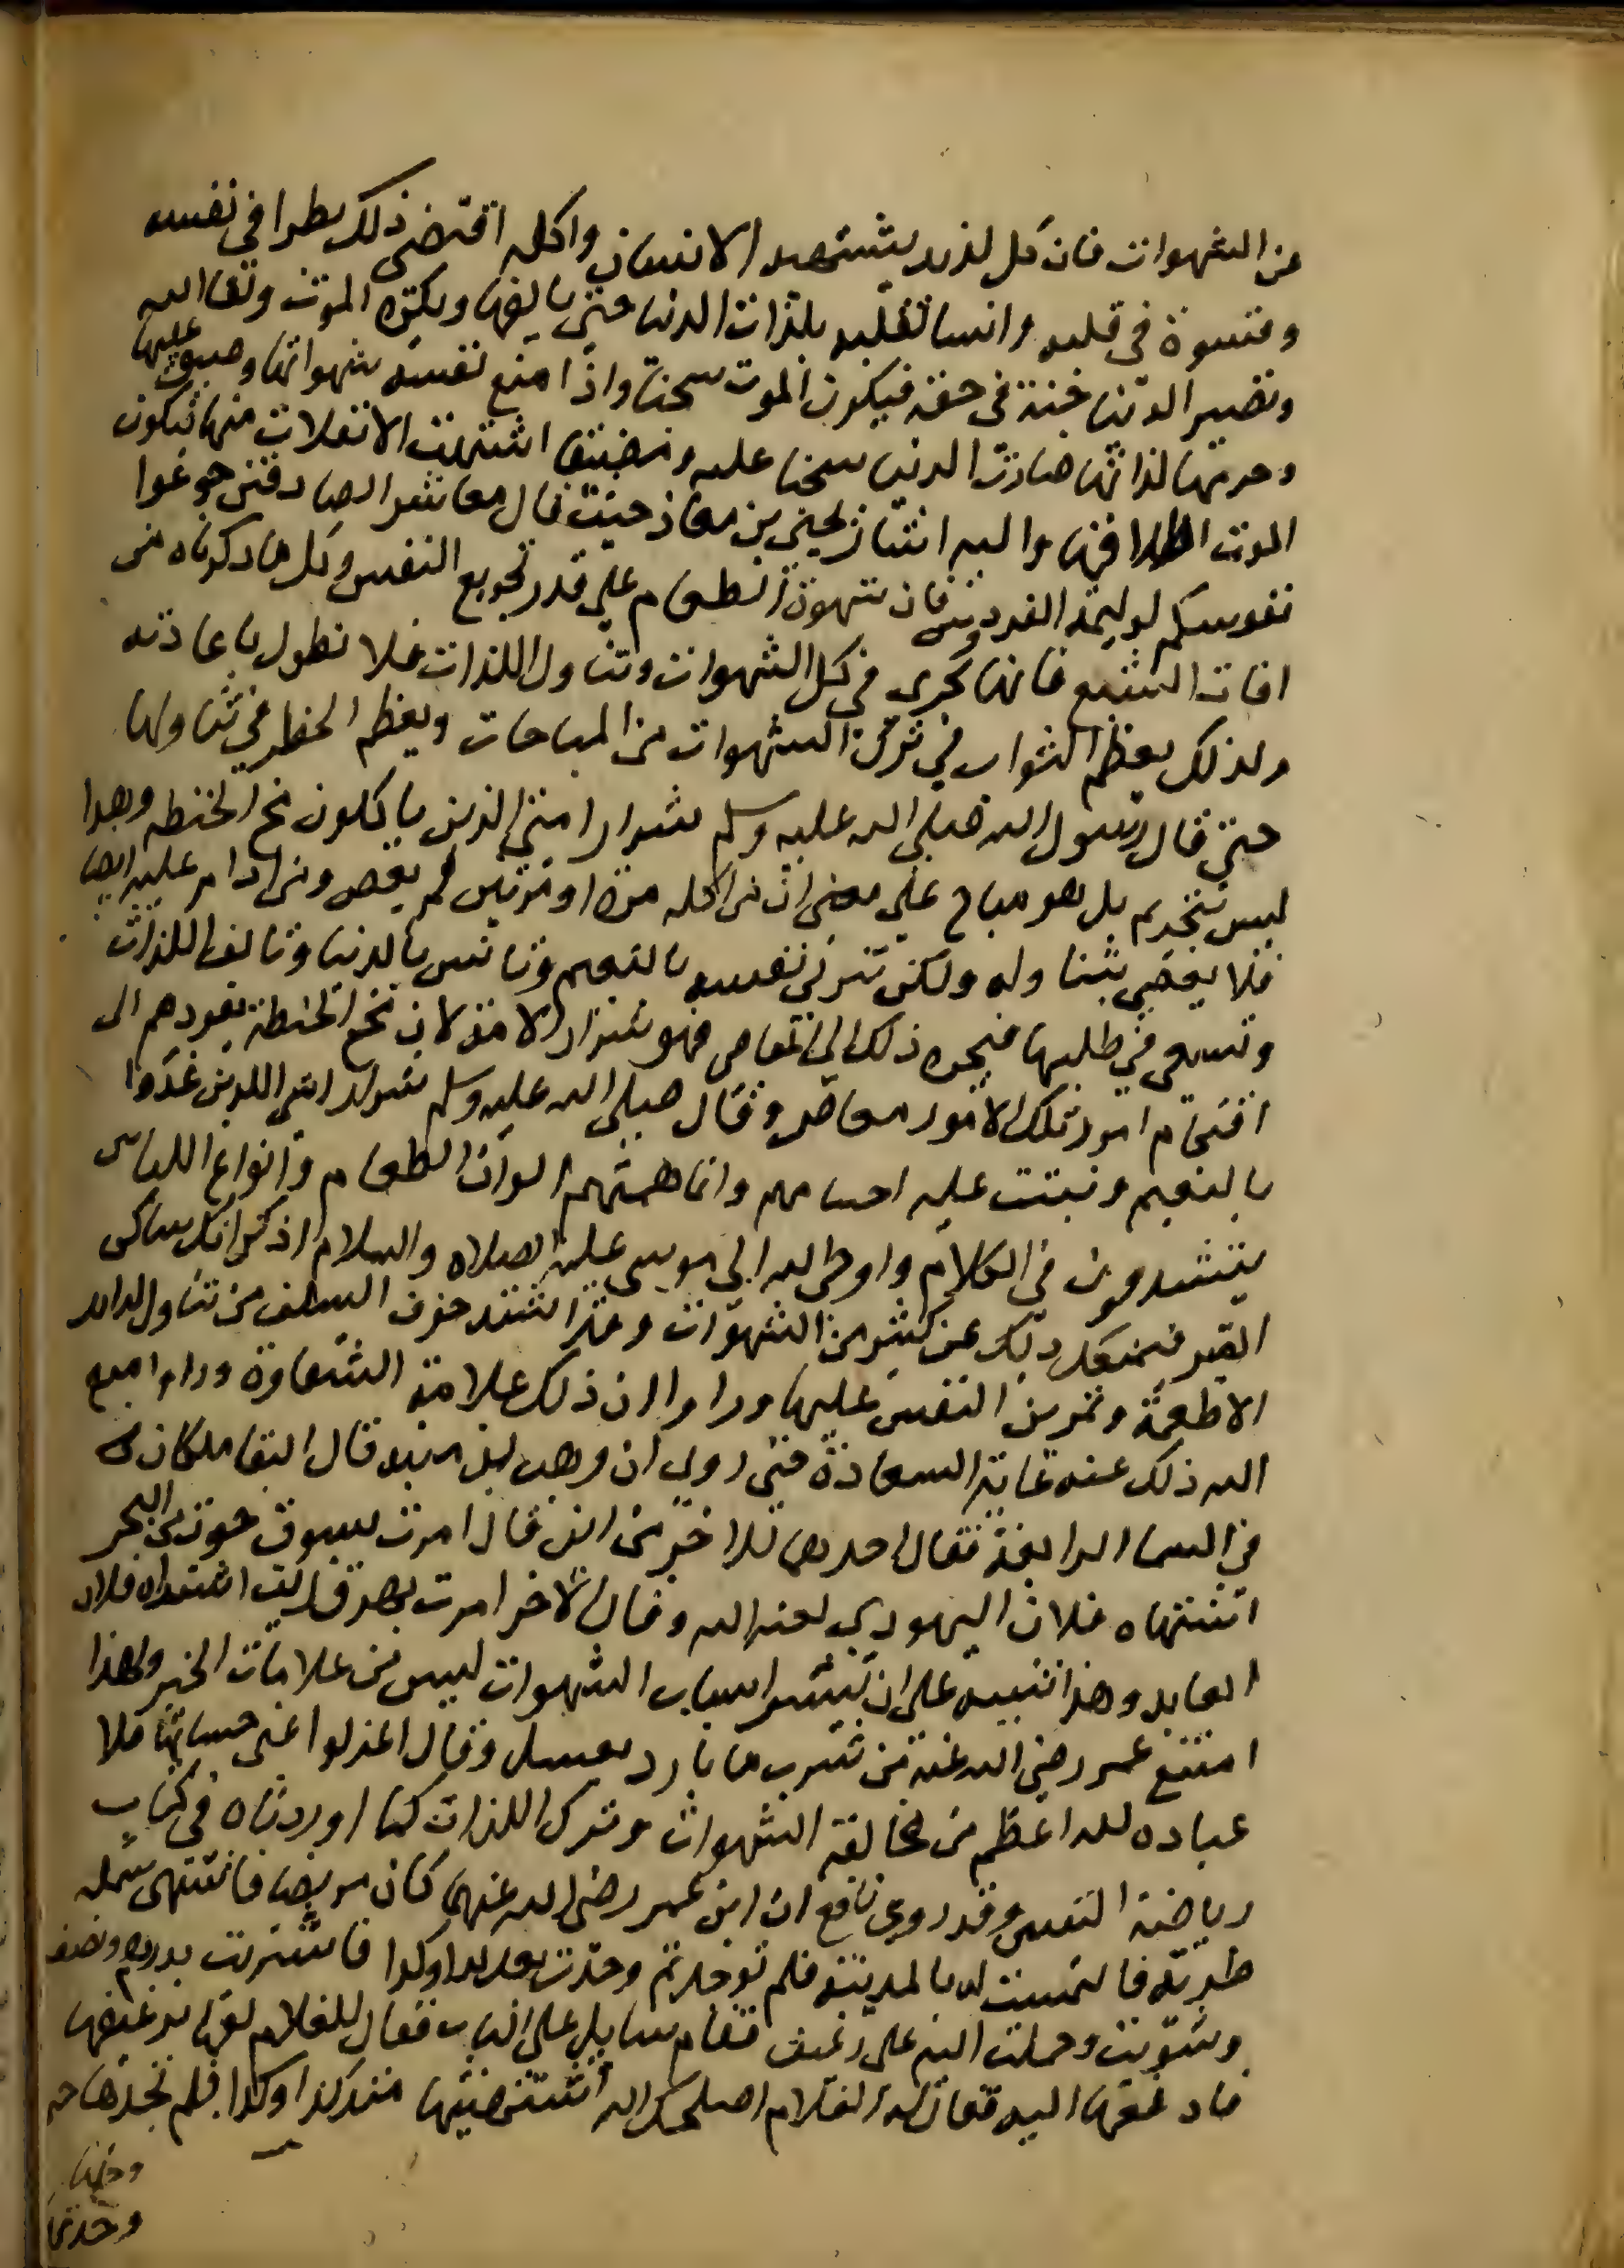 عن الشهوات فان كل لذيذ يشتهيه الانسان واكله اقتضى ذلك بطرا في نفسه
وقسوة في قلبه وانسا تقلبه بلذات الدنيا حتى يالفها ويكره الموت ولقا الله
وتصير الدنيا جنة في حقه فيكون الموت سجنا واذا منع نفسه شهواتها وضيق عليها
وحرمها لذاتها صارت الدنيا سجنا عليه ومضيقا اشتهت الانفلات منها فيكون
الموت اطلاقها واليه اشار يحيى بن معاذ حيث قال معاشر الصادقين جوعوا
نفوسكم لوليمة الفردوس فان شهوة الطعام على قدر تجويع النفس وكل ما ذكرناه من
افات الشبع فانها تجري في كل الشهوات وتناول اللذات فلا نطول باعادته
ولذلك يعظم الثواب في ترك الشهوات من المباحات ويعظم الخطر في تناولها
حتى قال رسول الله صلى الله عليه وسلم شرار امتي الذين ياكلون مخ الحنطه وهذا
ليس بتحريم بل هو مباح على معنى ان من اكله مرة او مرتين لم يعص ومن داوم عليه ايضا
فلا يعصي بتناوله ولكن تتربى نفسه بالنعيم وتانس بالدنيا وتالف اللذات
وتسعى في طلبها فيجره ذلك الى المعاصي فهو شرار الامة لان مخ الحنطة يقودهم الى
اقتحام امور تلك الامور معاصي وقال صلى الله عليه وسلم شرار امتي الذين غذوا
بالنعيم ونبتت عليه اجسامهم وانما همتهم الوان الطعام وانواع اللباس
يتشدقون في الكلام واوحى الله الى موسى عليه الصلاه والسلام اذكر انك ساكن
القبر فيمنعك ذلك عن كثير من الشهوات وقد اشتد خوف السلف من تناول لذائذ
الاطعمة وتمرين النفس عليها وراوا ان ذلك علامة الشقاوة وراوا منع
الله ذلك عنه غاية السعادة حتى روي ان وهب بن منبه قال التقا ملكان
في السما الرابعة فقال احدهما للاخر من اين قال امرت بسوق حوت من البحر
اشتهاه فلان اليهودي لعنه الله وقال الاخر امرت بهرق زيت اشتهاه فلان
العابد وهذا تنبيه على ان تيسر اسباب الشهوات ليس من علامات الخير ولهذا
امتنع عمر رضي الله عنه من شرب ما بارد بعسل وقال اعزلوا عني حسابها فلا
عباده لله اعظم من مخالفة الشهوات وترك اللذات كما اوردناه في كتاب
رياضة النفس وقد روى نافع ان ابن عمر رضي الله عنهما كان مريضا فاشتهى سمكه
طرية فالتمست له بالمدينة فلم توجد ثم وجدت بعد كذا وكذا فاشتريت بدرهم ونصف
وشويت وحملت اليه على رغيف فقام سايل على الباب فقال للغلام لفها برغيفها
فادفعها اليه فقال له الغلام اصلحك الله اشتهيتها منذ كذا وكذا فلم نجدها
وجدنا
وجدتها